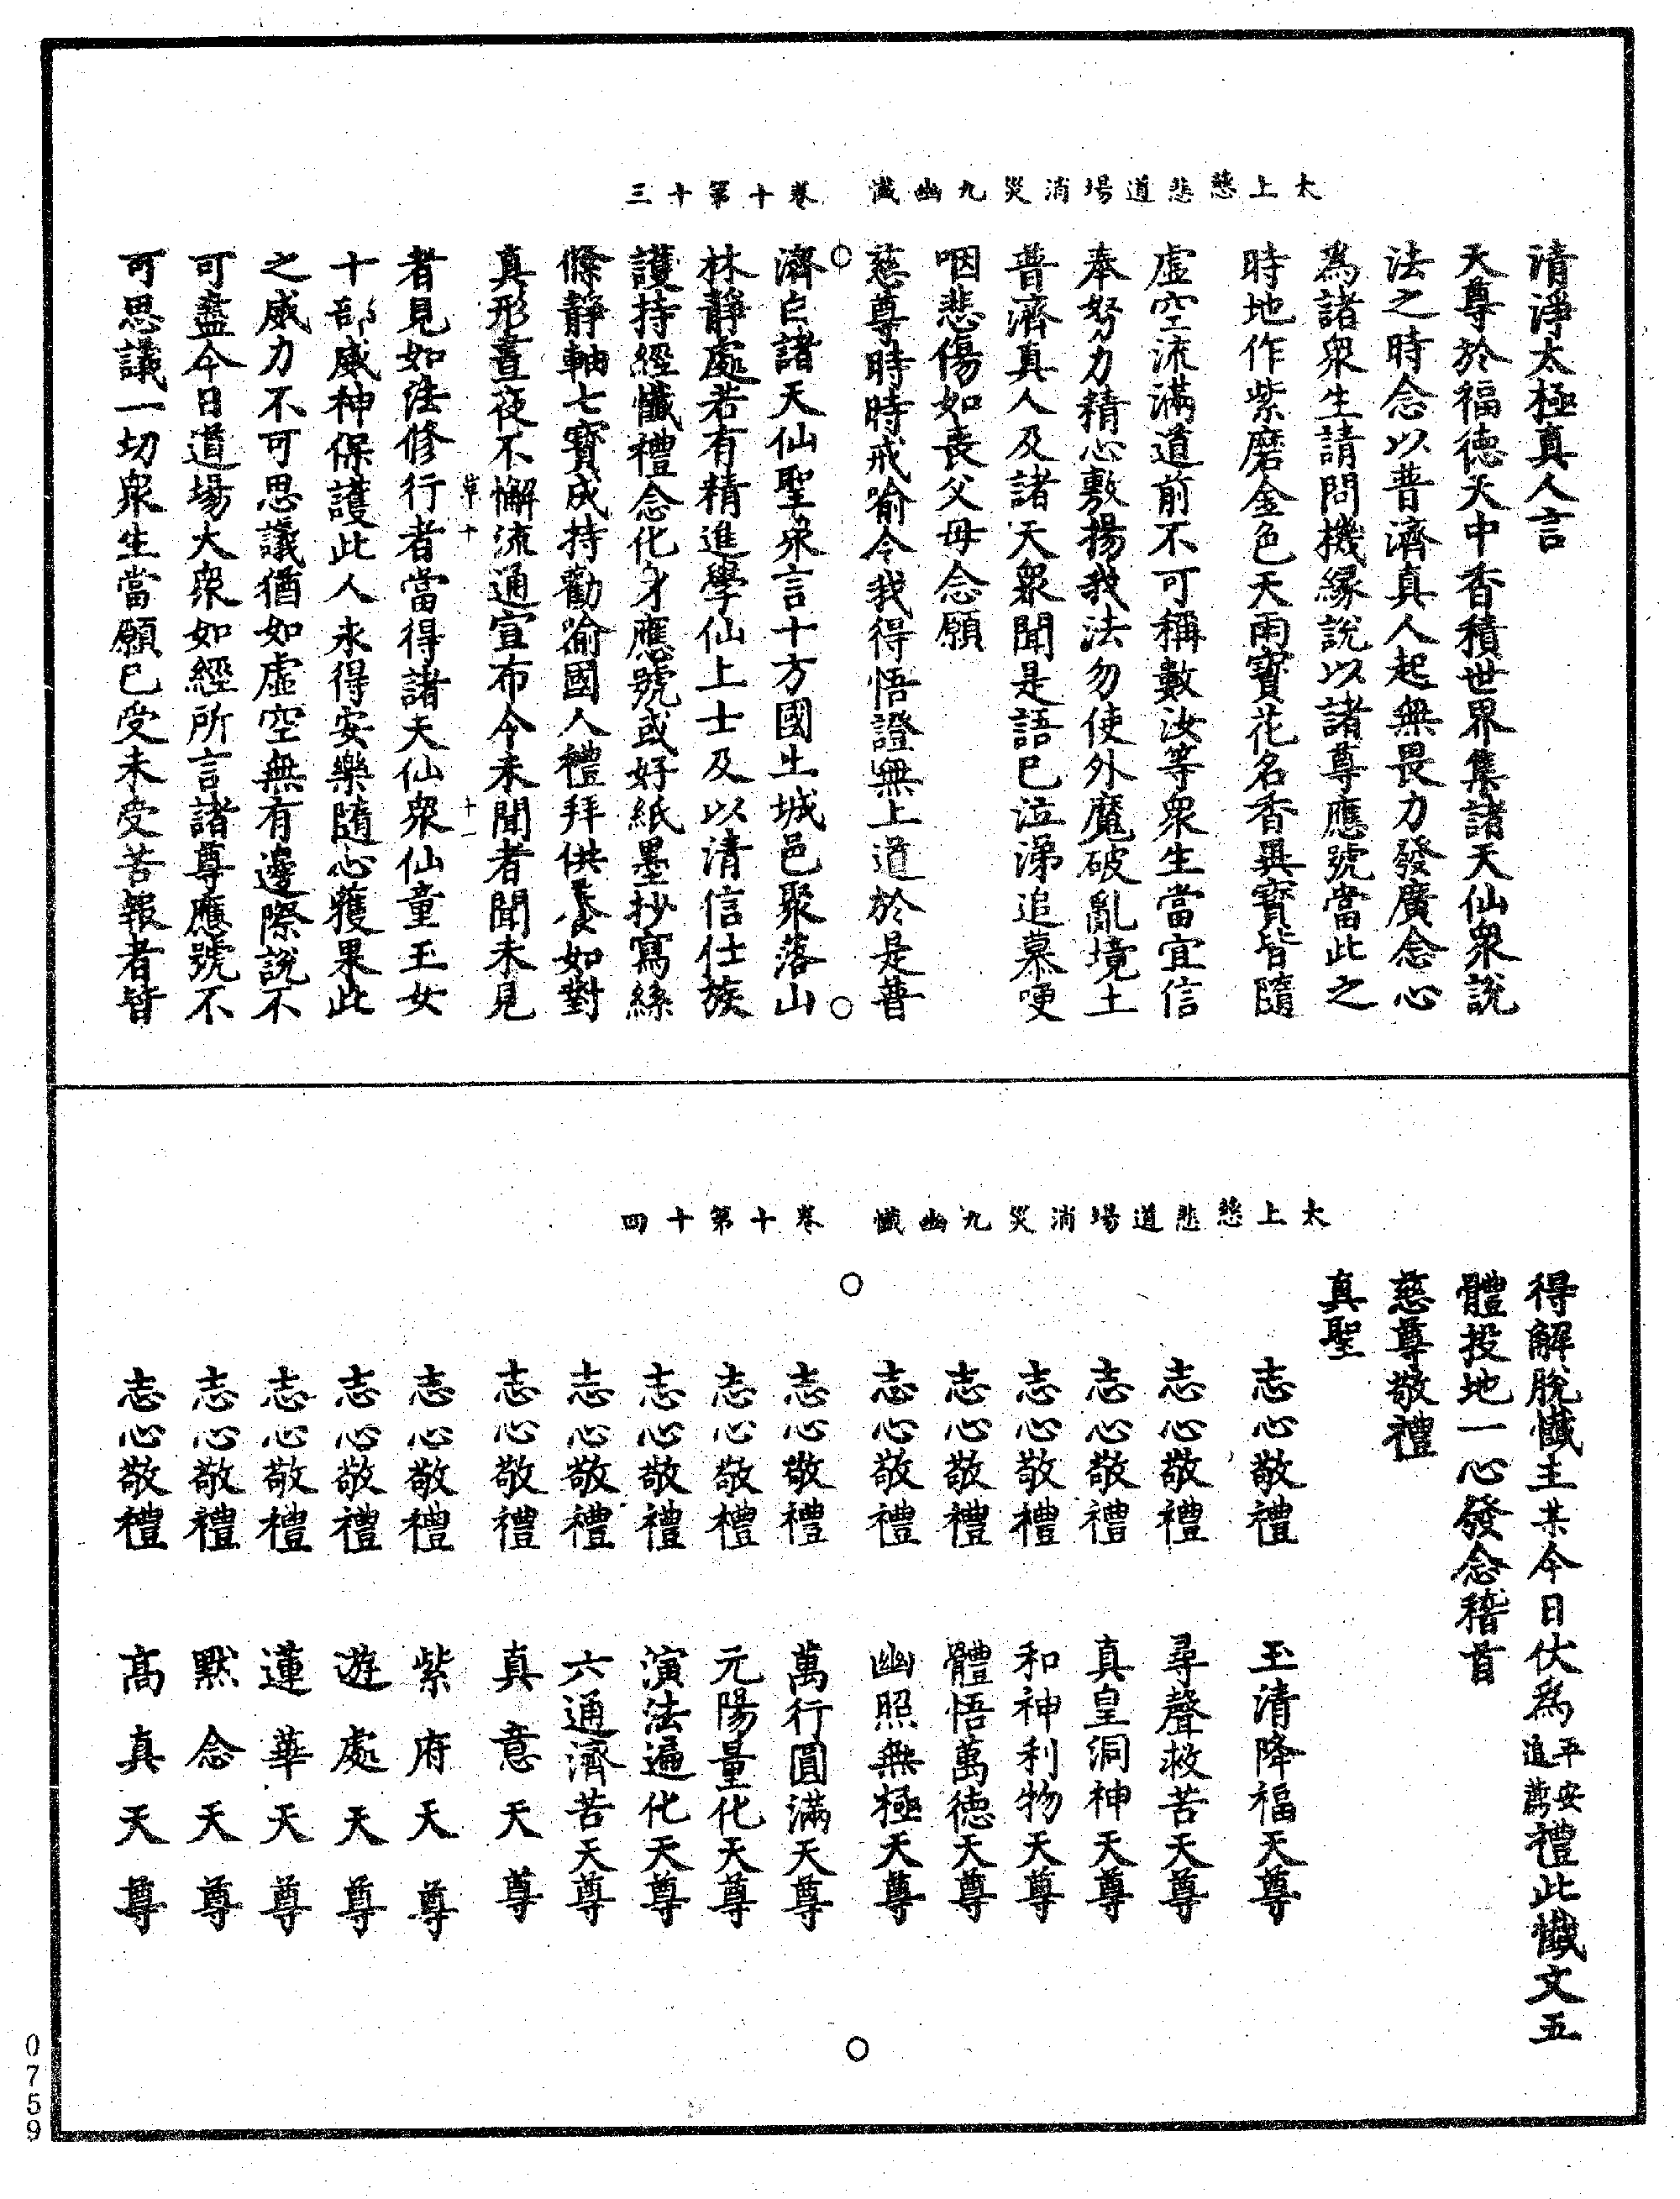 太上慈悲道場消災九幽懺　卷十第十三
清淨太極真人言
天尊於福德天中香積世界集諸天仙衆說
法之時念以普濟真人起無畏力發廣念心
為諸衆生請問機緣說以諸尊應號當此之
時地作紫磨金色天雨寶花名香異寶皆隨
虛空流滿道前不可稱數汝等衆生當宜信
奉努力精心敷揚我法勿使外魔破亂境土
普濟真人及諸天衆聞是語已泣涕追慕哽
咽悲傷如喪父母念願
慈尊時時戒喻令我得悟證無上道於是普
濟白諸天仙聖衆言十方國土城邑聚落山
林靜處若有精進學仙上士及以清信仕族
護持經懺禮念化身應號或好紙墨抄寫絲
絛靜軸七寶成持勸喻國人禮拜供養如對
真形晝夜不懈流通宣布今未聞者聞未見
草十　十一
者見如法修行者當得諸天仙衆仙童玉女
十部威神保護此人永得安樂隨心獲果此
之威力不可思議猶如虛空無有邊際說不
可盡今日道場大衆如經所言諸尊應號不
可思議一切衆生當願已受未受苦報者皆
太上慈悲道場消災九幽懺　卷十第十四
得解脫懺主某今日伏為平安追薦禮此懺文五
體投地一心發念稽首
慈尊敬禮
真聖
志心敬禮　玉清降福天尊
志心敬禮　尋聲救苦天尊
志心敬禮　真皇洞神天尊
志心敬禮　和神利物天尊
志心敬禮　體悟萬德天尊
志心敬禮　幽照無極天尊
志心敬禮　萬行圓滿天尊
志心敬禮　元陽量化天尊
志心敬禮　演法遍化天尊
志心敬禮　六通濟苦天尊
志心敬禮　真意天尊
志心敬禮　紫府天尊
志心敬禮　遊處天尊
志心敬禮　蓮華天尊
志心敬禮　默念天尊
志心敬禮　高真天尊
0759